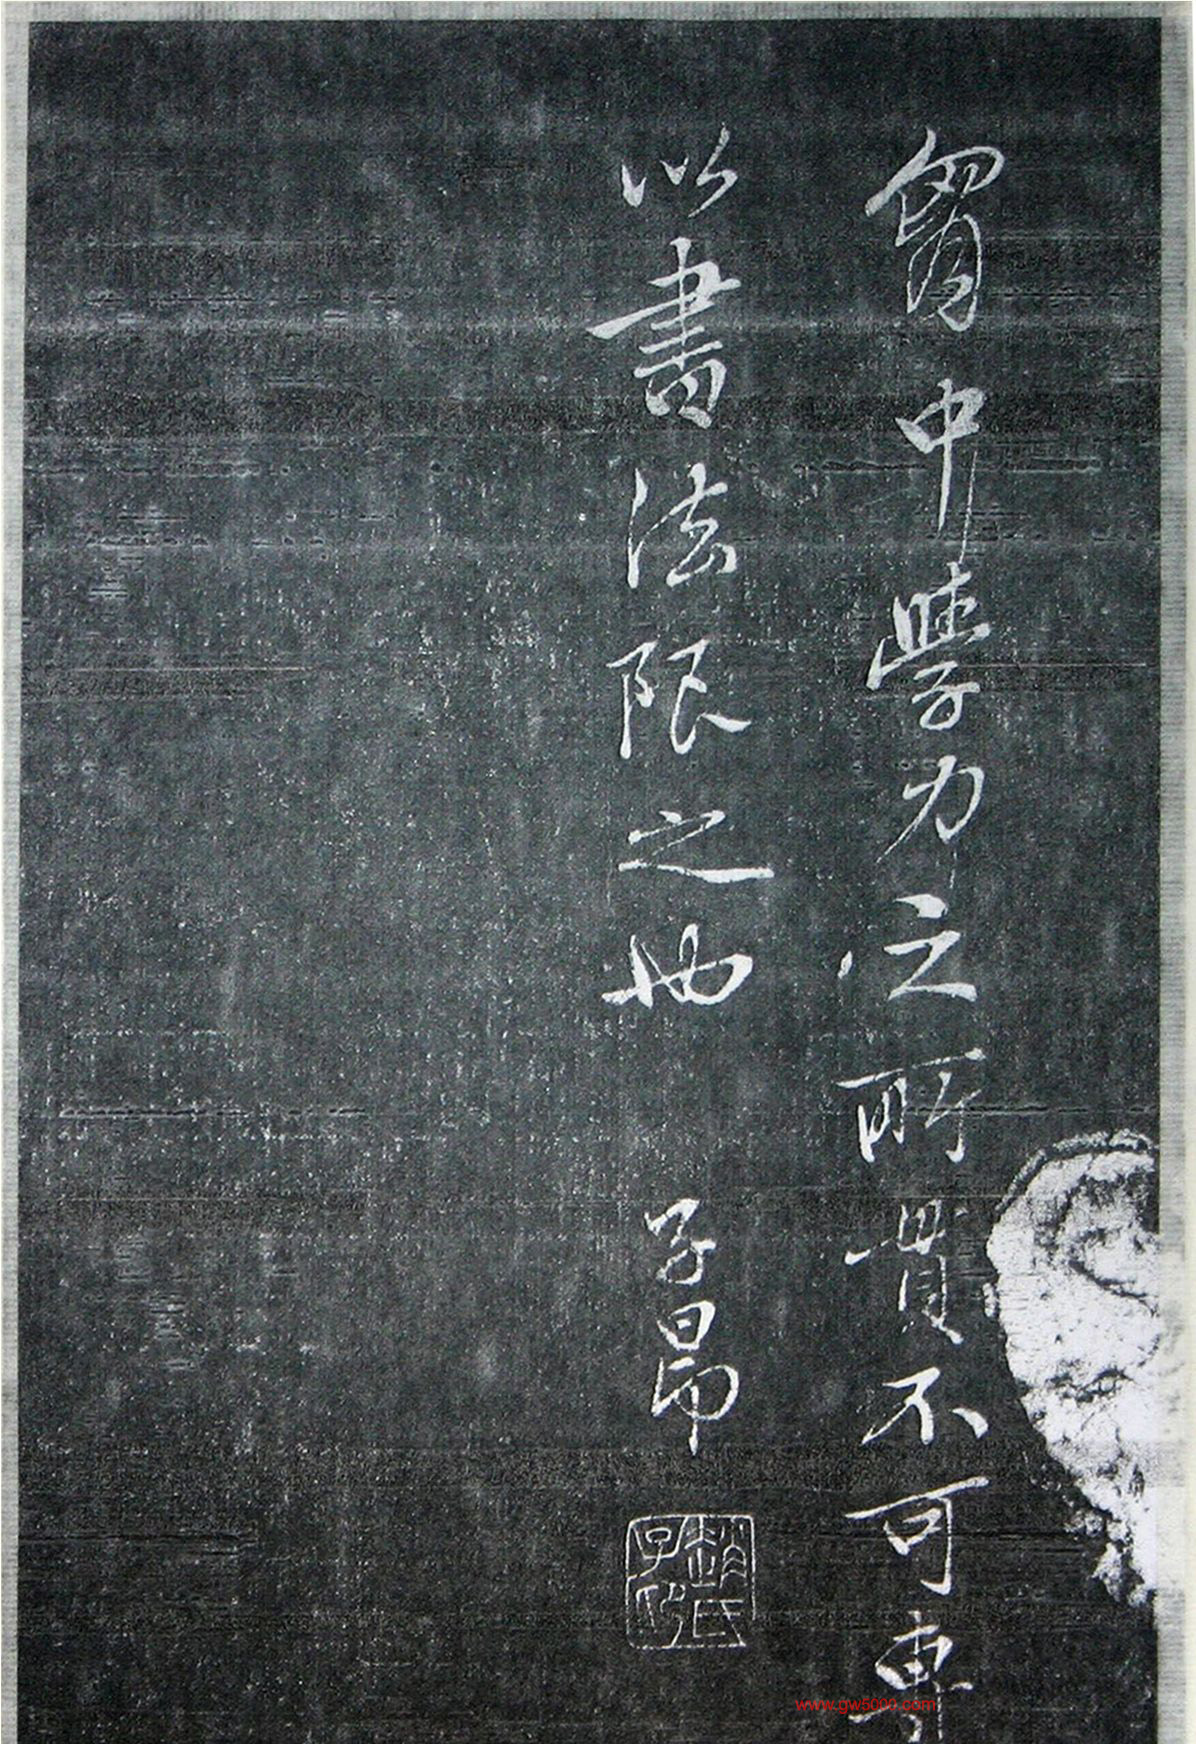 胷中學力之所貫不可專
以書法限之也 子昂
趙氏子昂
www.gw5000.com